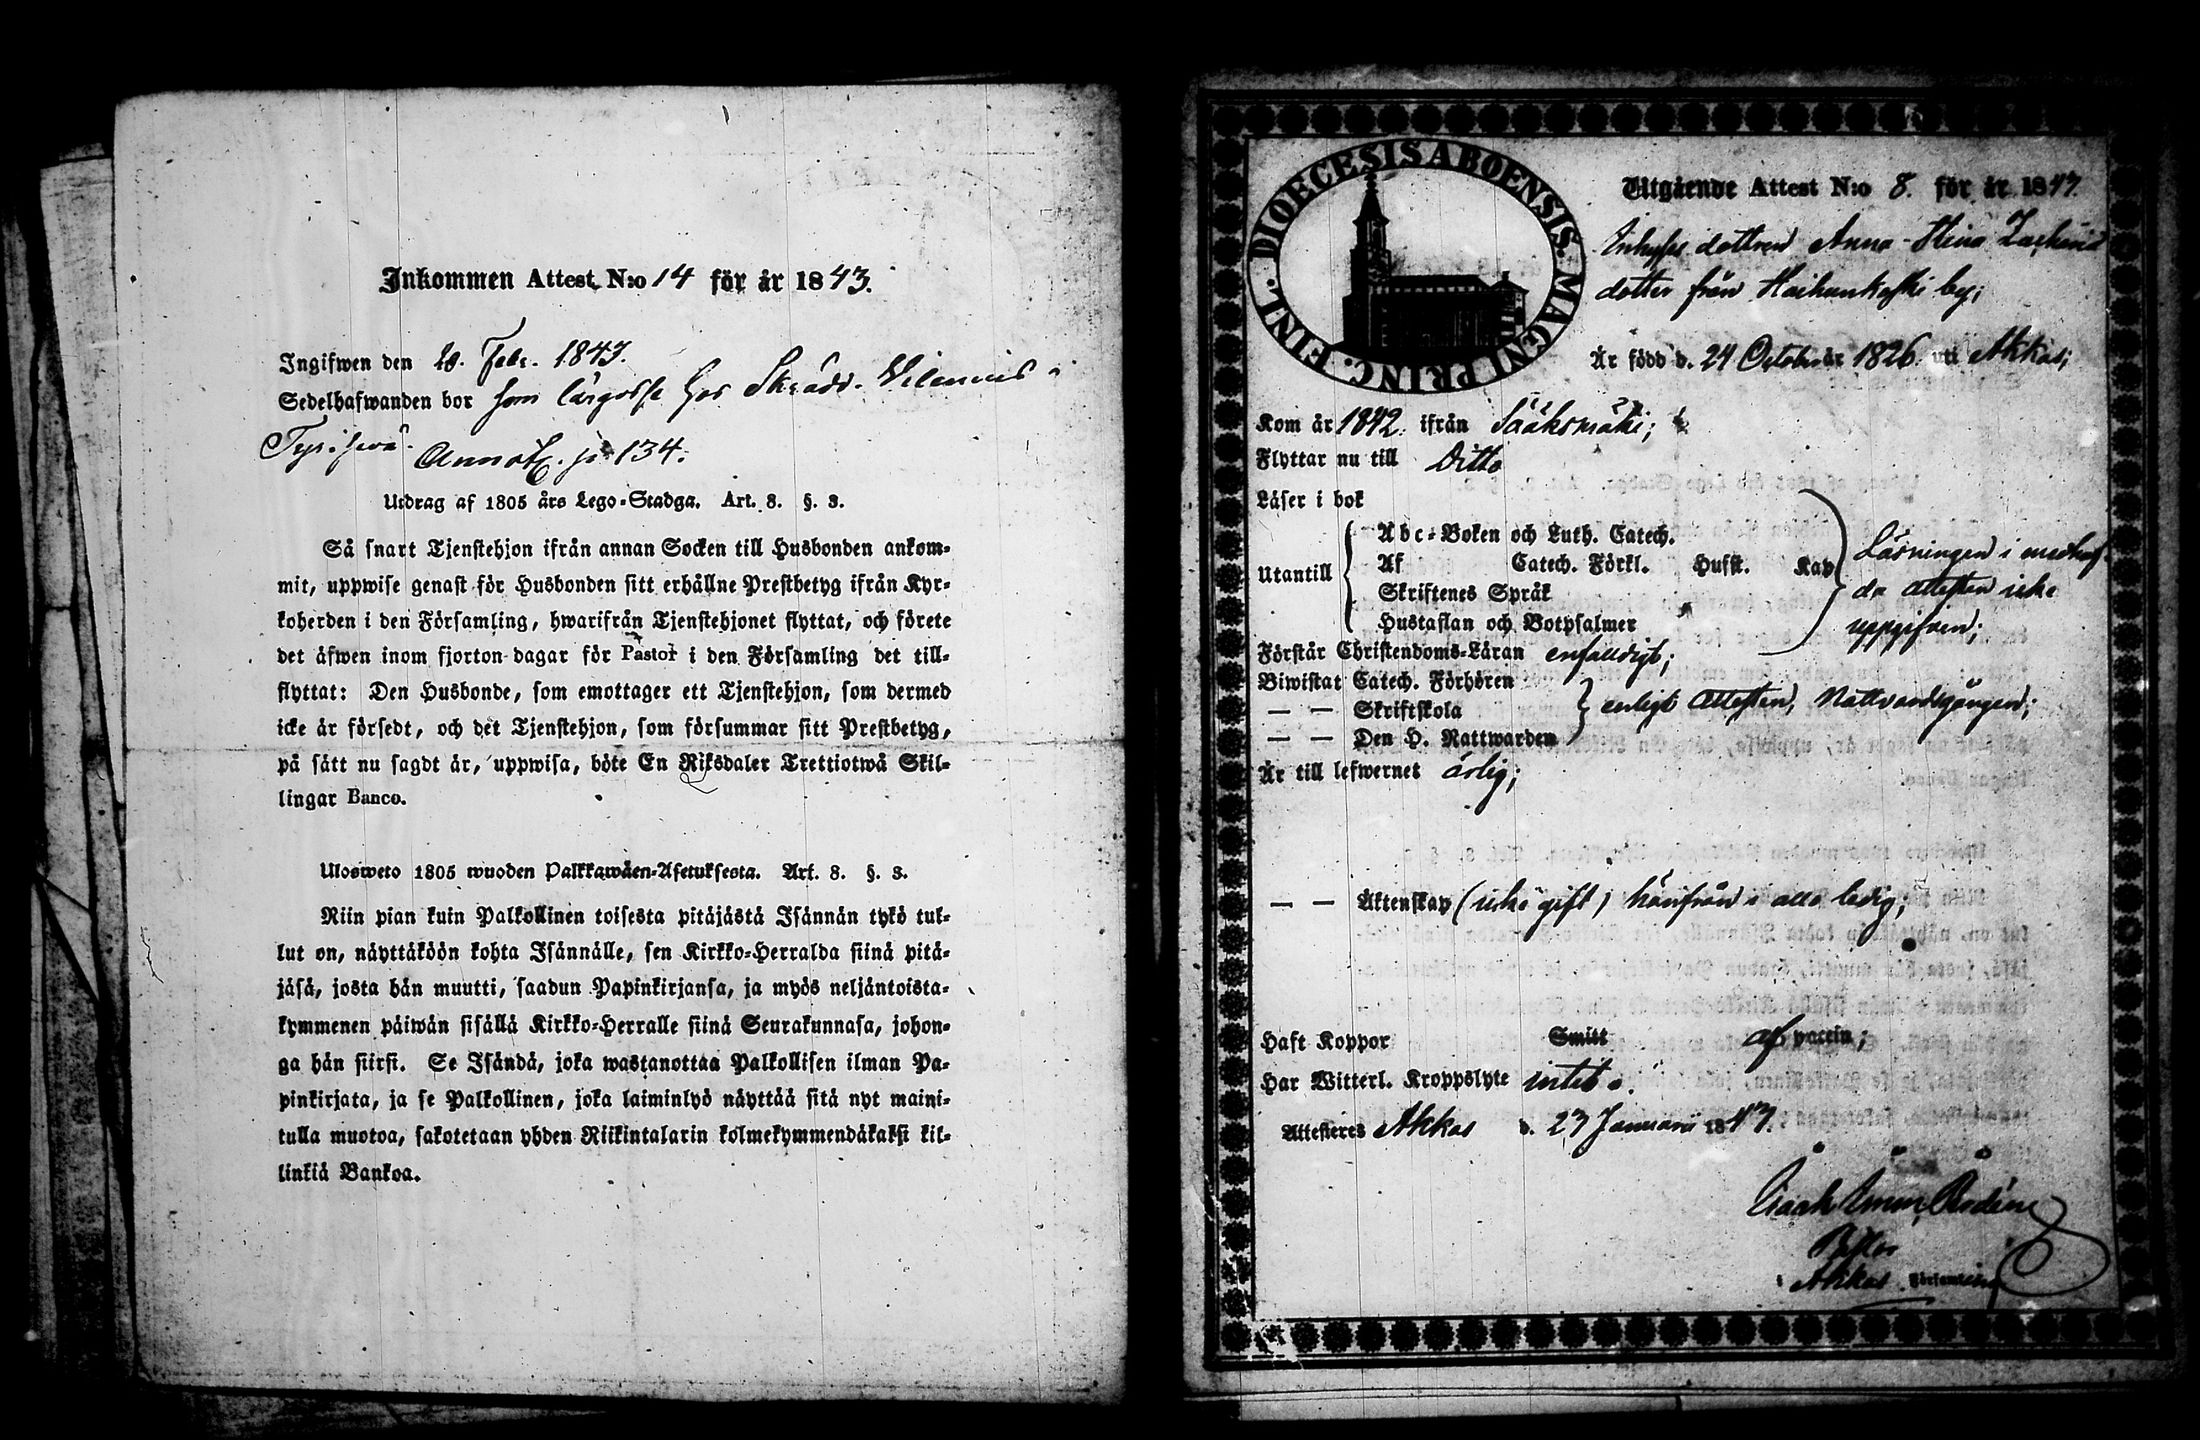 Inkommen Attest N:o 14 för år 1843.
Ingifwen den 10. Febr. 1843.
Sedelhafwanden bor som lärgosse hos Skrädd. Vilenius i
Annot. p. 134.
Utdrag af 1805 års Lego-Stadga. Art. 8. §. 3.
Så snart Tjenstehjon ifrån annan Socken till Husbonden ankom-
mit, uppwise genast för Husbonden sitt erhållne Prestbetyg ifrån Kyr-
koherden i den Församling, hwarifrån Tjenstehjonet flyttat, och förete
det äfwen inom fjorton dagar för Pastor i den Församling det till-
flyttat: Den Husbonde, som emottager ett Tjenstehjon, som dermed
icke är försedt, och det Tjenstehjon, som försummar sitt Prestbetyg,
på sätt nu sagdt är, uppwisa, böte En Riksdaler Trettiotwå Skil-
lingar Banco.
Ulosweto 1805 wuoden Palkkawäen-Asetuksesta. Art. 8. §. 3.
Niin pian kuin Palkollinen toisesta pitäjästä Isännän tykö tul-
lut on, näyttäköön kohta Isännälle, sen Kirkko-Herralda siinä pitä-
jäsä, josta hän muutti, saadun Papinkirjansa, ja myös neljäntoista-
kymmenen päiwän sisällä Kirkko-Herralle siinä Seurakunnasa, johon-
ga hän siirsi. Se Isändä, joka wastanottaa Palkollisen ilman Pa-
pinkirjata, ja se Palkollinen, joka laiminlyö näyttää sitä nyt maini-
tulla muotoa, sakotetaan yhden Riikintalarin kolmekymmendäkaksi kil-
linkiä Bankoa.
DIOECESIS ABOENSIS. MAGNI PRINC. FINL.
Utgående Attest N:o 8. för år 1843.
Inhyses dottren Anna Stina Zacharias
dotter från Haihunkoski by;
Är född d. 24 October år 1826. uti Akkas;
Kom år 1842. ifrån Sääksmäki;
Flyttar nu till Ditto
Läser i bok
Abc-Boken och Luth. Catech.
Utantill Af Catech. Förkl. Husst. Kap
Skriftenes Språk
Hustaflan och Botpsalmer
Läsningen i medhaf
da attesten icke
uppgifven;
Förstår Christendoms-Läran enfaldigt;
Biwistat Catech. Förhören
— — Skriftskola enligt attesten, Nattvardsgången;
— — Den H. Nattwarden
Är till lefwernet ärlig;
— — Äktenskap (icke gift) härifrån i allo ledig;
Haft Koppor Smitt af vaccin;
Har Witterl. Kroppslyte intet.
Attesteras Akkas d. 23 Januarii 1843.
Isaak Rodén
Akkas Församling